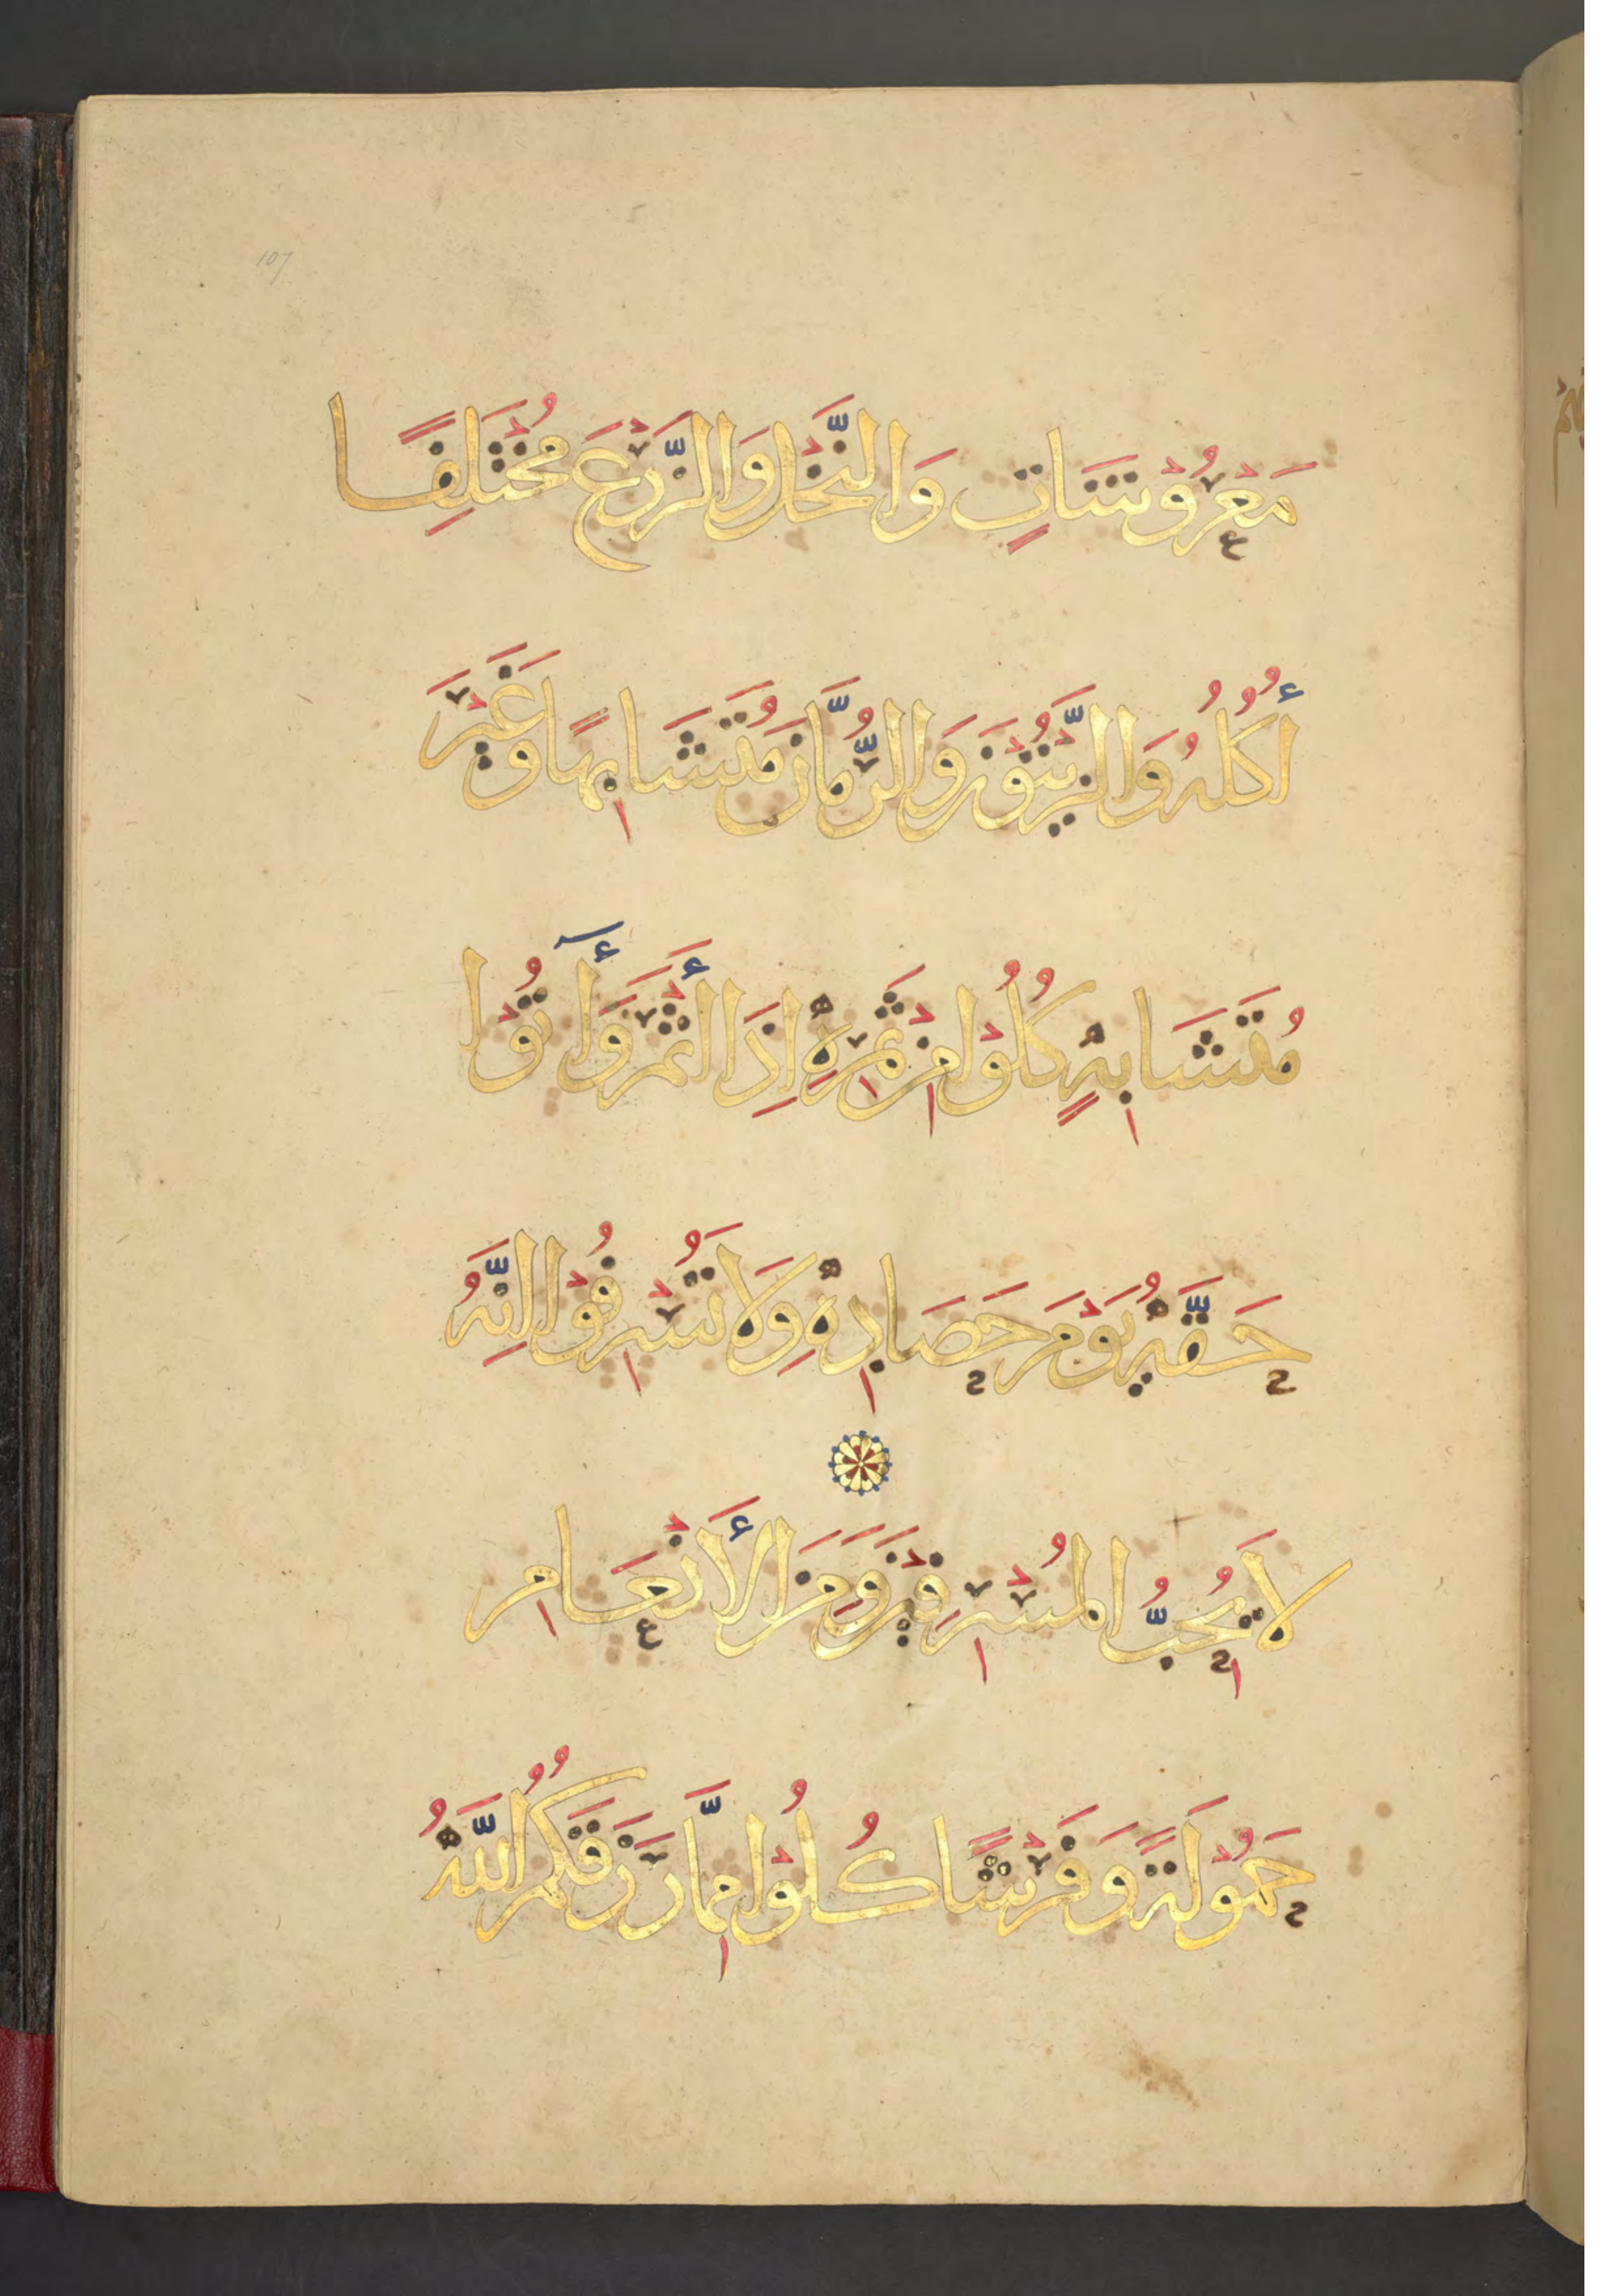 مَعْرُوْشَاتٍ وَالنَّخْلَ وَالزَّرْعَ مُخْتَلِفًا
أُكُلُهُ وَالزَّيْتُوْنَ وَالرُّمَّانَ مُتَشَابِهًا وَغَيْرَ
مُتَشَابِهٍ كُلُوْا مِنْ ثَمَرِهِ إِذَا أَثْمَرَ وَآتُوْا
حَقَّهُ يَوْمَ حَصَادِهِ وَلَا تُسْرِفُوْا إِنَّهُ
لَا يُحِبُّ الْمُسْرِفِيْنَ وَمِنَ الْأَنْعَامِ
حَمُوْلَةً وَفَرْشًا كُلُوْا مِمَّا رَزَقَكُمُ اللَّهُ
107